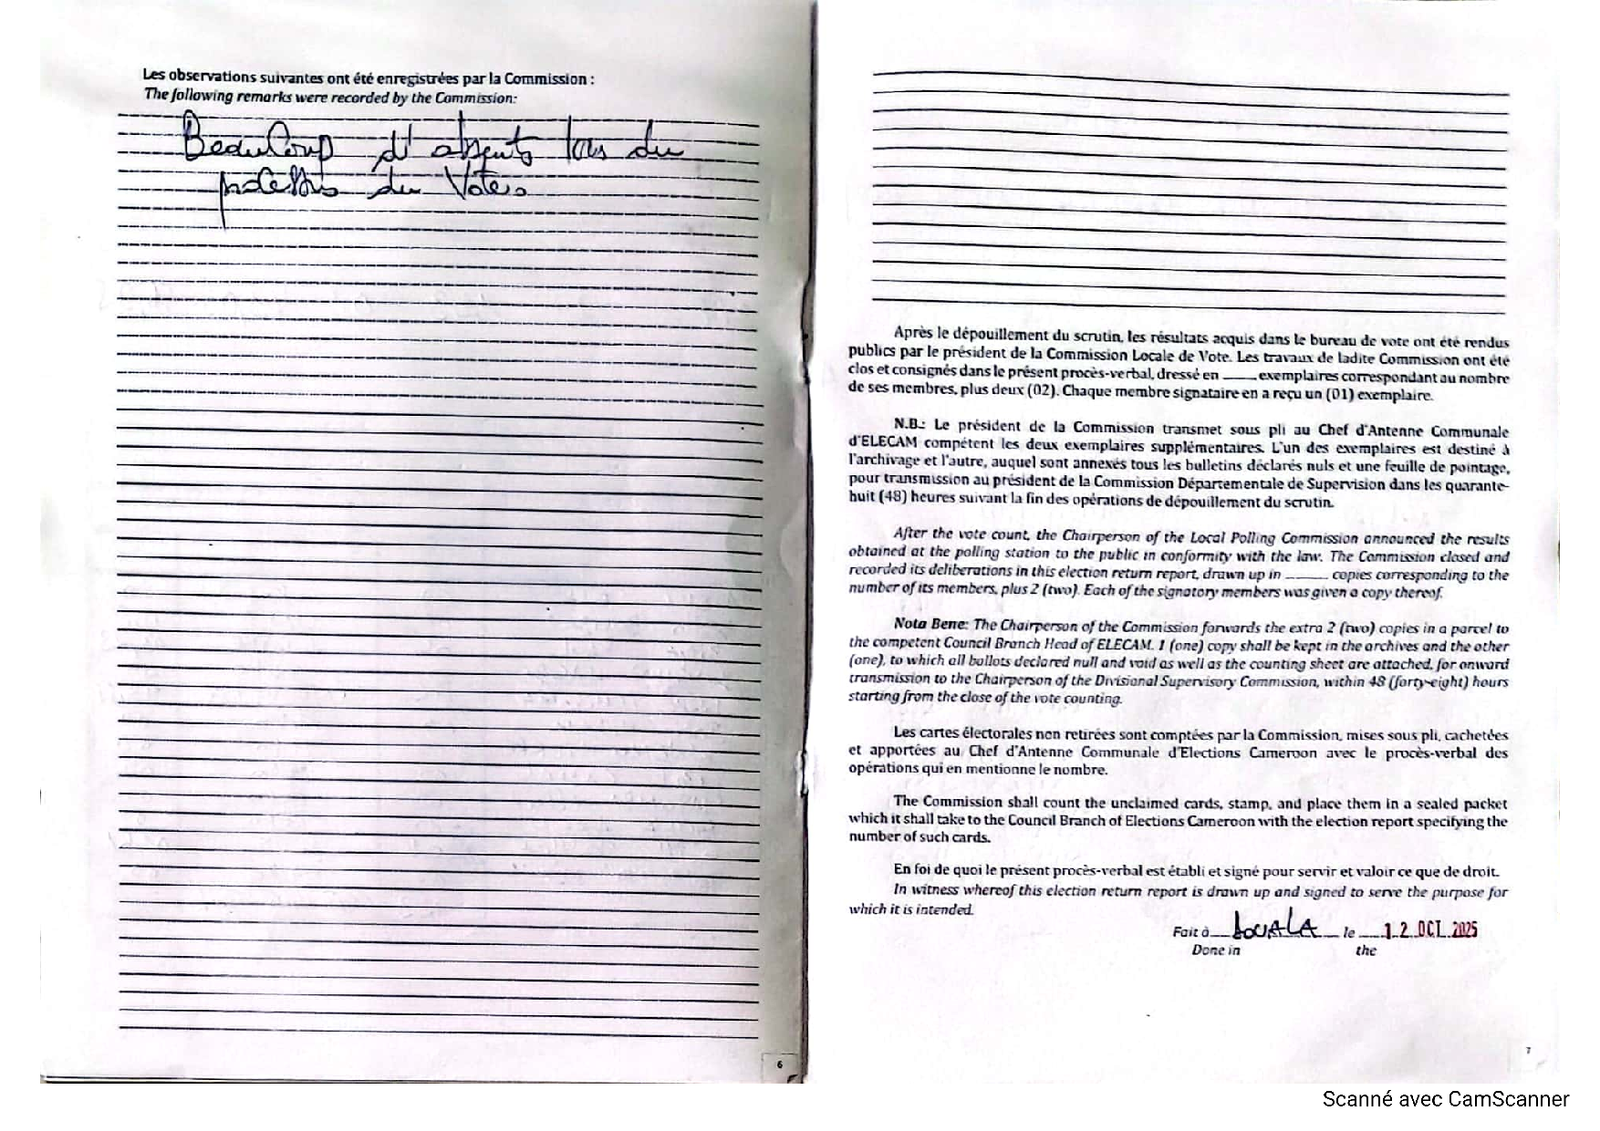 Les observations suivantes ont été enregistrées par la Commission :
The following remarks were recorded by the Commission:
BeauCoup d'absents lors du
processus du Vote.
6
Après le dépouillement du scrutin, les résultats acquis dans le bureau de vote ont été rendus
publics par le président de la Commission Locale de Vote. Les travaux de ladite Commission ont été
clos et consignés dans le présent procès-verbal, dressé en ____ exemplaires correspondant au nombre
de ses membres, plus deux (02). Chaque membre signataire en a reçu un (01) exemplaire.
N.B.: Le président de la Commission transmet sous pli au Chef d'Antenne Communale
d'ELECAM compétent les deux exemplaires supplémentaires. L'un des exemplaires est destiné à
l'archivage et l'autre, auquel sont annexés tous les bulletins déclarés nuls et une feuille de pointage,
pour transmission au président de la Commission Départementale de Supervision dans les quarante-
huit (48) heures suivant la fin des opérations de dépouillement du scrutin.
After the vote count, the Chairperson of the Local Polling Commission announced the results
obtained at the polling station to the public in conformity with the law. The Commission closed and
recorded its deliberations in this election return report, drawn up in ____ copies corresponding to the
number of its members, plus 2 (two). Each of the signatory members was given a copy thereof.
Nota Bene: The Chairperson of the Commission forwards the extra 2 (two) copies in a parcel to
the competent Council Branch Head of ELECAM. 1 (one) copy shall be kept in the archives and the other
(one), to which all ballots declared null and void as well as the counting sheet are attached, for onward
transmission to the Chairperson of the Divisional Supervisory Commission, within 48 (forty-eight) hours
starting from the close of the vote counting.
Les cartes électorales non retirées sont comptées par la Commission, mises sous pli, cachetées
et apportées au Chef d'Antenne Communale d'Elections Cameroon avec le procès-verbal des
opérations qui en mentionne le nombre.
The Commission shall count the unclaimed cards, stamp, and place them in a sealed packet
which it shall take to the Council Branch of Elections Cameroon with the election report specifying the
number of such cards.
En foi de quoi le présent procès-verbal est établi et signé pour servir et valoir ce que de droit.
In witness whereof this election return report is drawn up and signed to serve the purpose for
which it is intended.
Fait à DOUALA le 12 OCT. 2025
Done in the
7
Scanné avec CamScanner